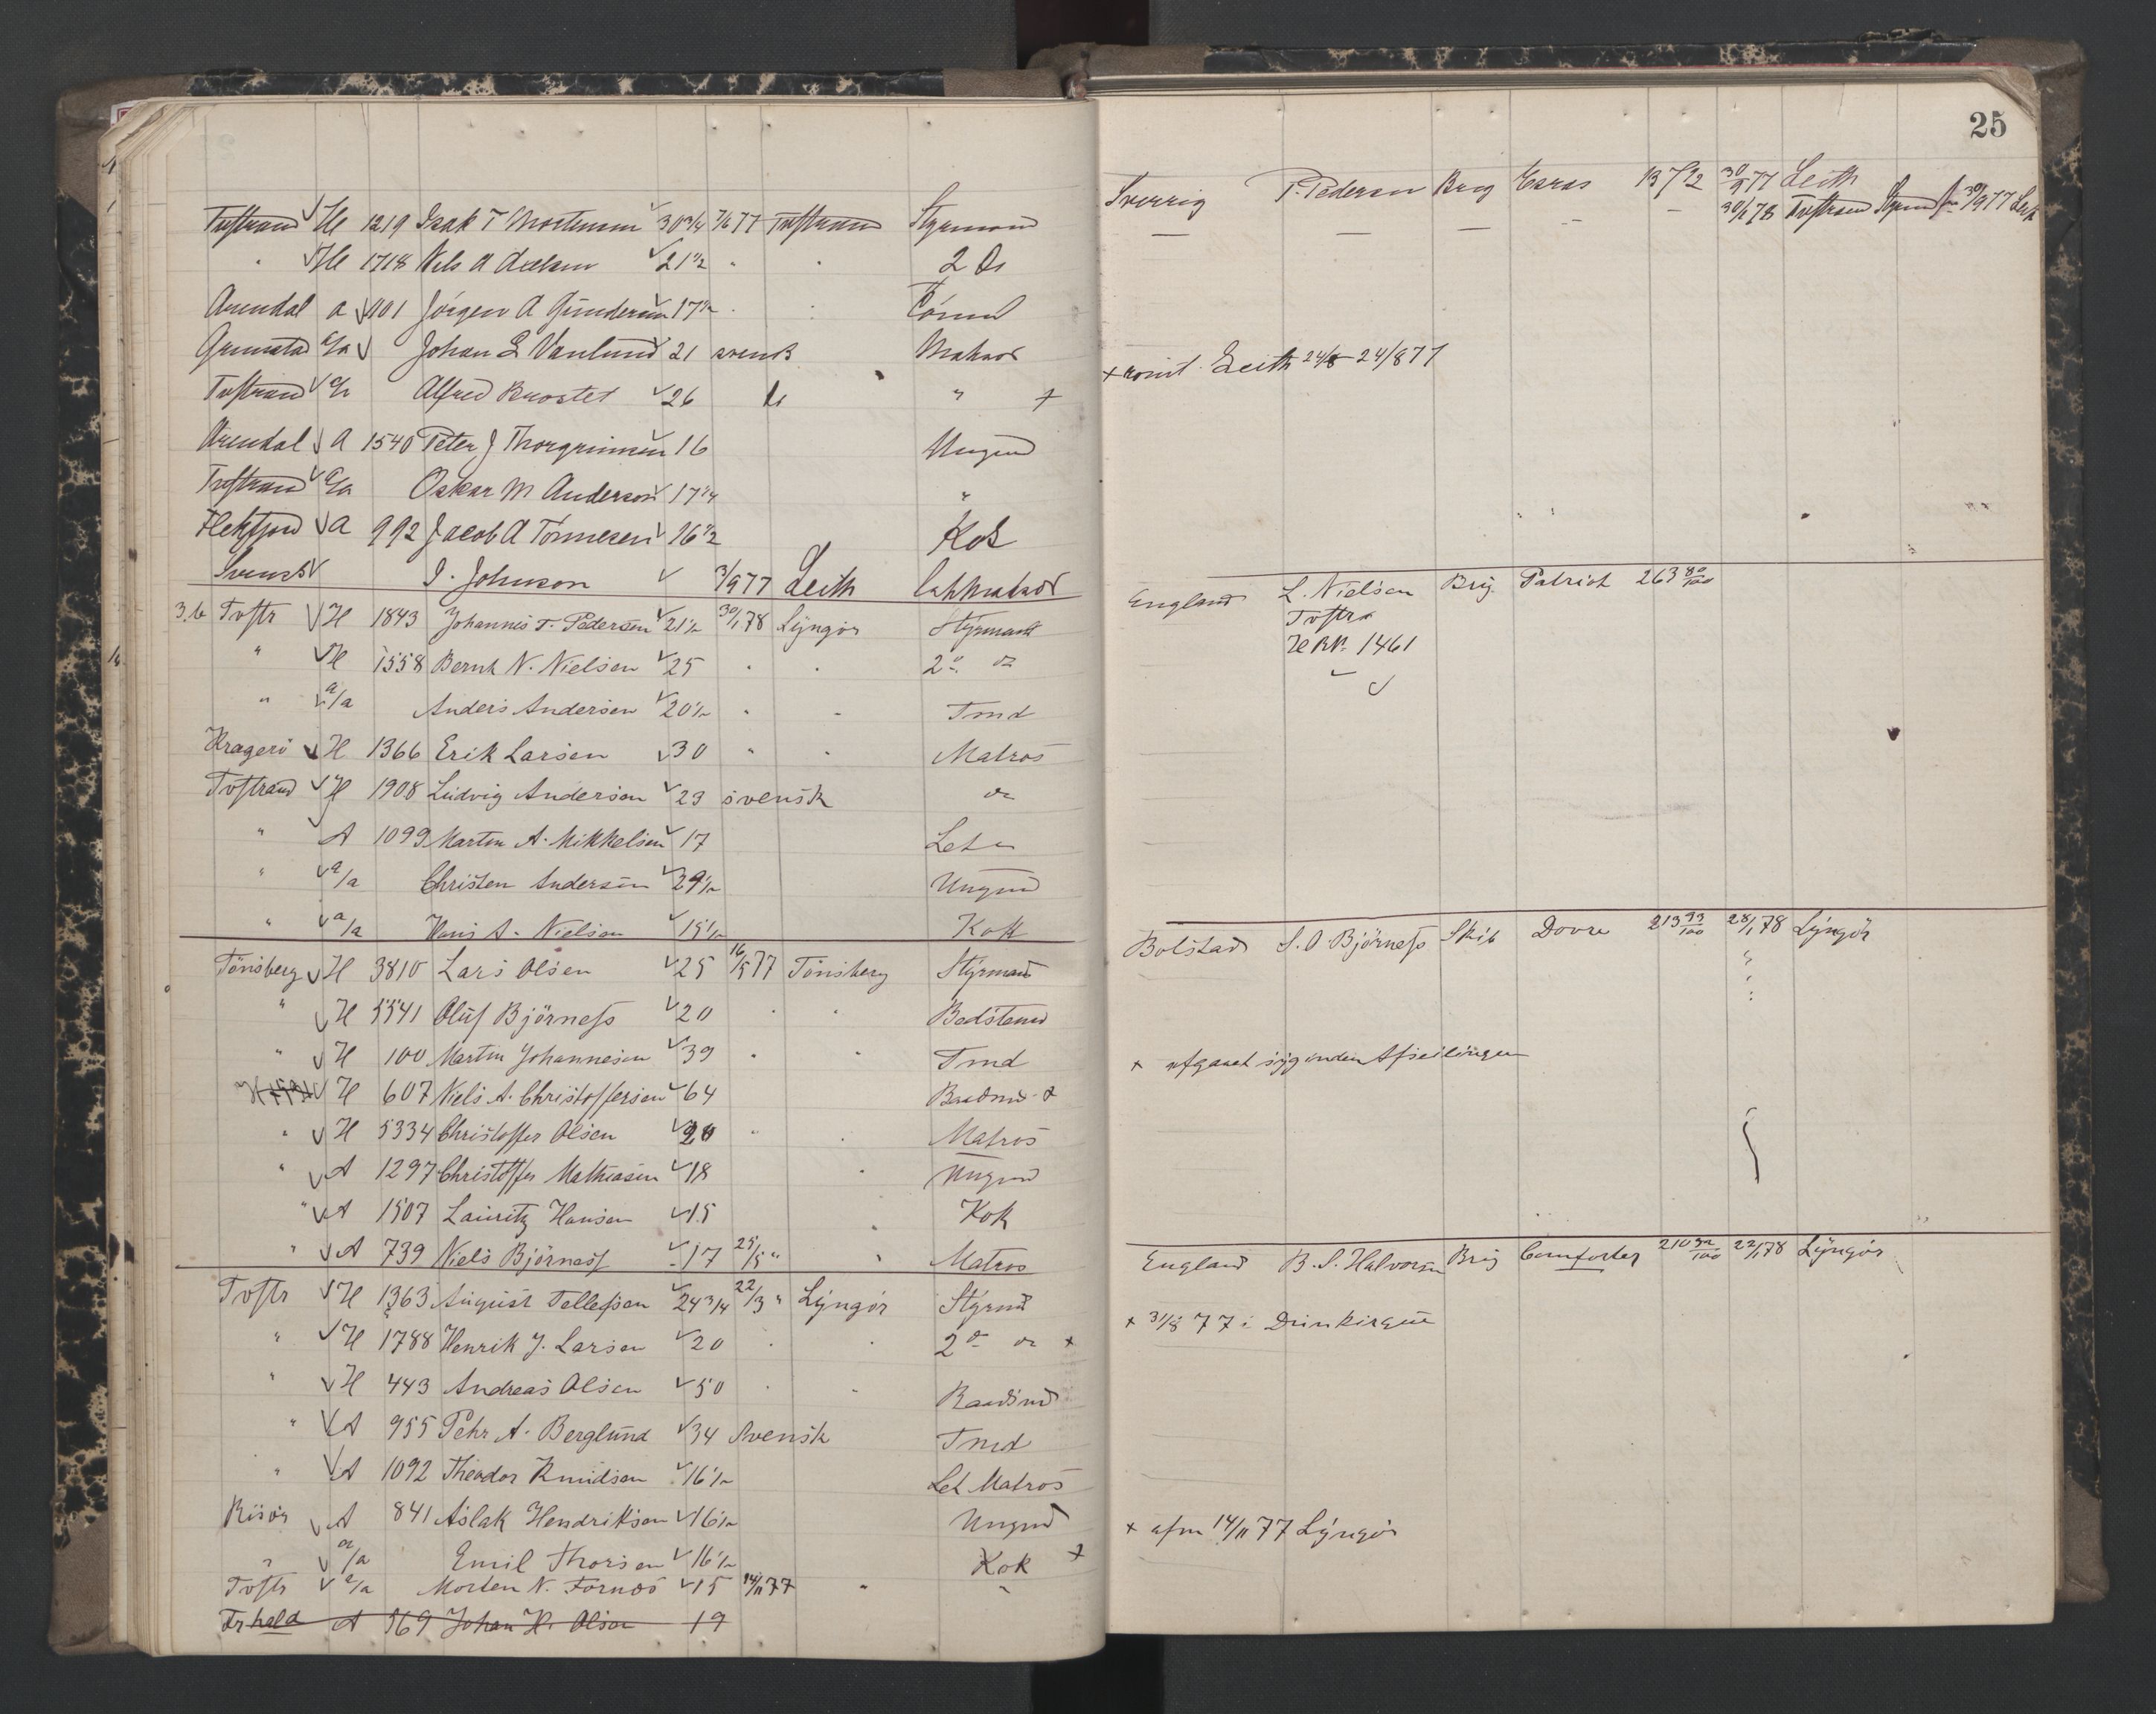 25
H 1219 Isak T Mortensen 30 3/4 77 Styrmand
H 1718 Nils A 21 1/2 " " 2 do
Arendal a 101 Jörgen A Gundersen 17 1/2
Grimstad a/a Johan 21 svensk Matros
a/a Alfred 26 do " +
Arendal A 1540 Peter J Thorgrimsen 16 Ungmd
a/a Oskar M Anderson 17 1/4 "
A 992 Jacob A Tönnesen 16 1/2 Kok
Svensk J. Johnson 3/9 77 Leith
Tvstr H 1843 Johannes T. Pedersen 21 1/2 30/1 78 Lyngör Styrmand
" H 1558 Bernt N. Nielsen 25 " " 2 do
" a/a Anders Andersen 20 1/2 " " Tmd
Kragerö H 1366 Erik Larsen 30 " " Matros
Tvstrand H 1908 Ludvig Anderson 23 svensk do
" A 1099 Martin A. Mikkelsen 17 Let
" a/a Christen Andersen 29 1/2 Ungmd
" a/a Hans A. Nielsen 15 1/2 Kok
Tönsberg H 3810 Lars Olsen 25 16/5 77 Tönsberg Styrmand
" H 5541 Oluf Björness 20 " "
" H 100 Martin Johannesen 39 " " Tmd
H 607 Niels A. Christoffersen 64 Baadmd +
" H 5334 Christoffer Olsen 20 " " Matros
" A 1297 Christoffer Mathiasen 18 " Ungmd
" A 1507 Lauritz Hansen 15 " Kok
" A 739 Niels Björness 17 25/5 " " Matros
Tvstr H 1363 August Tellefsen 24 3/4 22/3 " Lyngör Styrmd
" H 1788 Henrik J. Larsen 20 " " 2 do +
" H 443 Andreas Olsen 50 " " Baadsmd
" A 955 Pehr A. Berglund 34 Svensk Tmd
" A 1092 Theodor Knudsen 16 1/2 Let Matros
Risör A 841 Aslak Hendriksen 16 1/2 Ungmd
" a/a Emil Thorsen 16 1/2 Kok +
Tvstr a/a Morten N. Fornæs 15 14/11 77 " "
A 569 Johan H. Olsen 19
Sverrig P. Pedersen Brig Esras 137 1/2 30/9 77 Leith
30/1 78 30/9 77
+ Leith 24/8 77
England L. Nielsen Brig Patriot 263 80/100
Tvstr
1461
Bolstad S. O Björness Skib Dovre 213 93/100 28/1 78 Lyngör
+ afgaaet syg inden Afseilingen
England B. S. Halvorsen Brig Comforter 210 32/100 22/1 78 Lyngör
+ 31/8 77 i Dunkirque
+ afm 14/11 77 Lyngör